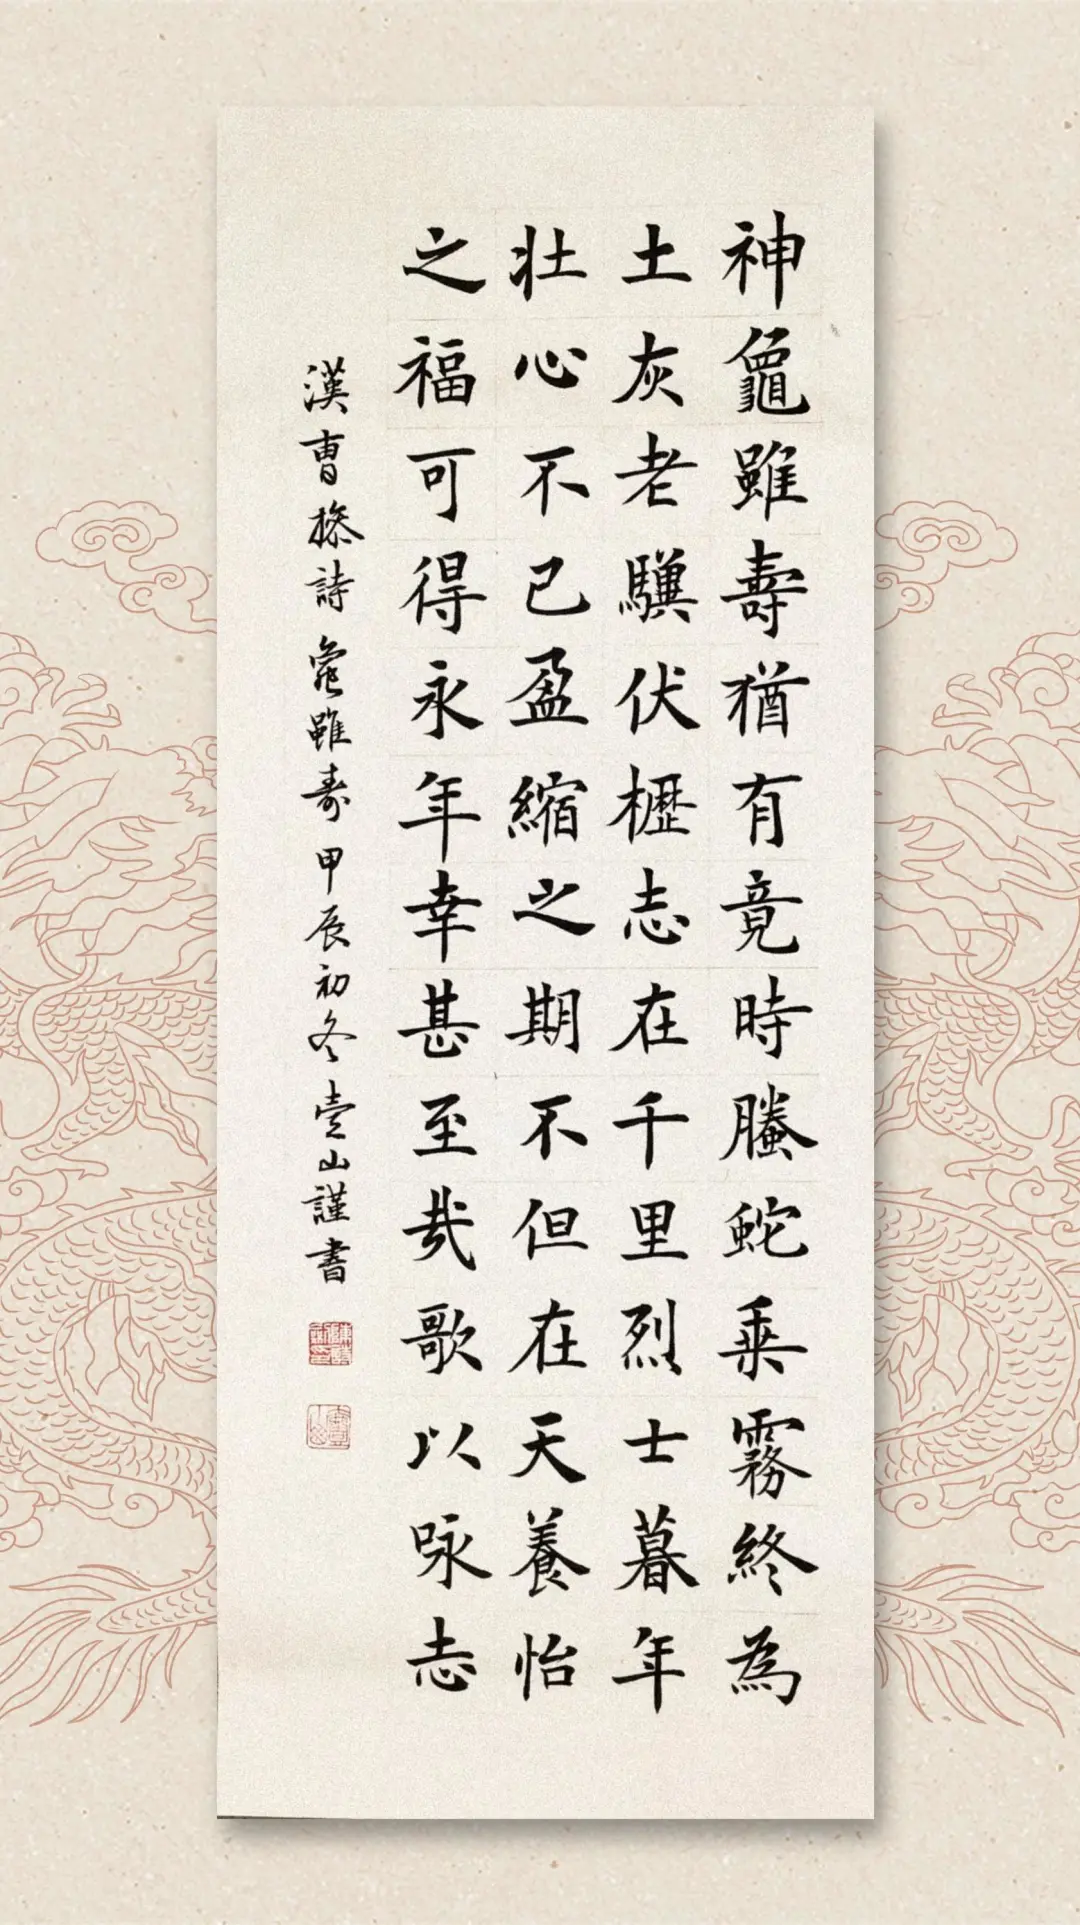 神龜雖壽猶有竟時螣蛇乘霧終為
土灰老驥伏櫪志在千里烈士暮年
壯心不已盈縮之期不但在天養怡
之福可得永年幸甚至哉歌以咏志
漢曹操詩龜雖寿甲辰初冬壹山謹書